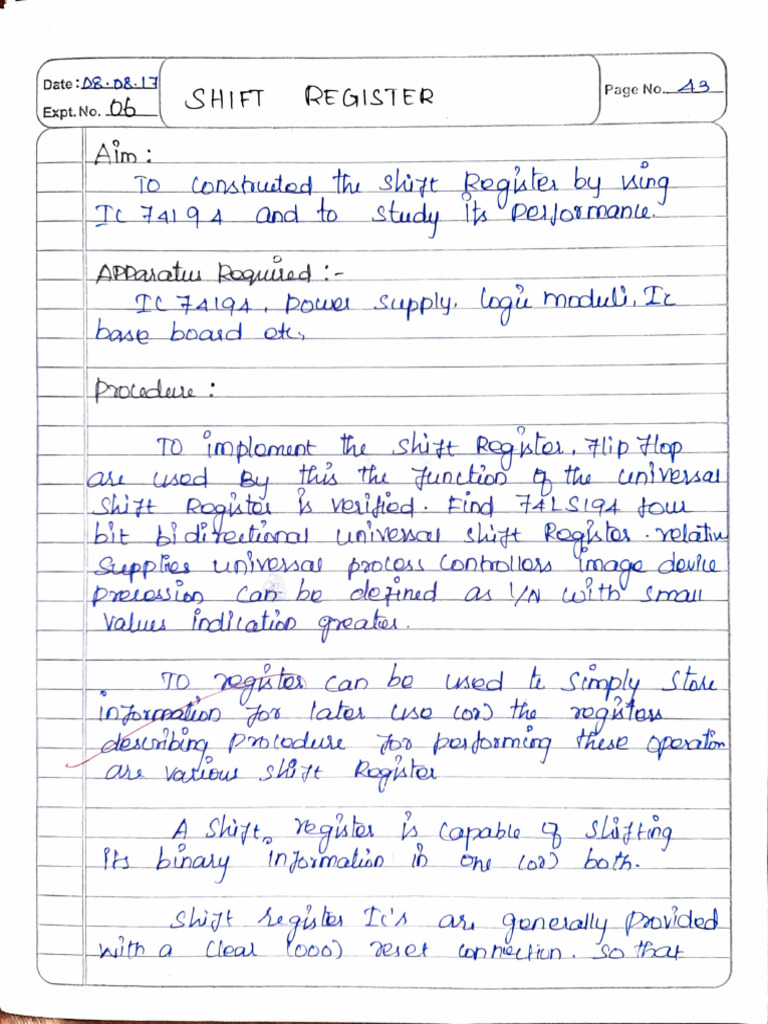 Date: 08.08.17
Expt. No. 06
SHIFT REGISTER
Page No. 43
Aim:
To constructed the shift Register by using
IC 74194 and to study its performance.
Apparatus Required :-
IC 74194, power supply, logic moduli, Ic
base board etc,
Procedure:
To implement the shift Register, Flip flop
are used By this the function of the universal
shift Register is verified. Find 74LS194 four
bit bidirectional universal shift Register. relativ
supplies universal process controllers image device
precession can be defined as 1/N with small
values indication greater.
To register can be used to simply store
information for later use (or) the registers
describing procedure for performing these operation
are various shift Register
A shift register is capable of shifting
its binary information in one (or) both.
shift register Ic's are generally provided
with a clear (000) reset connection. so that